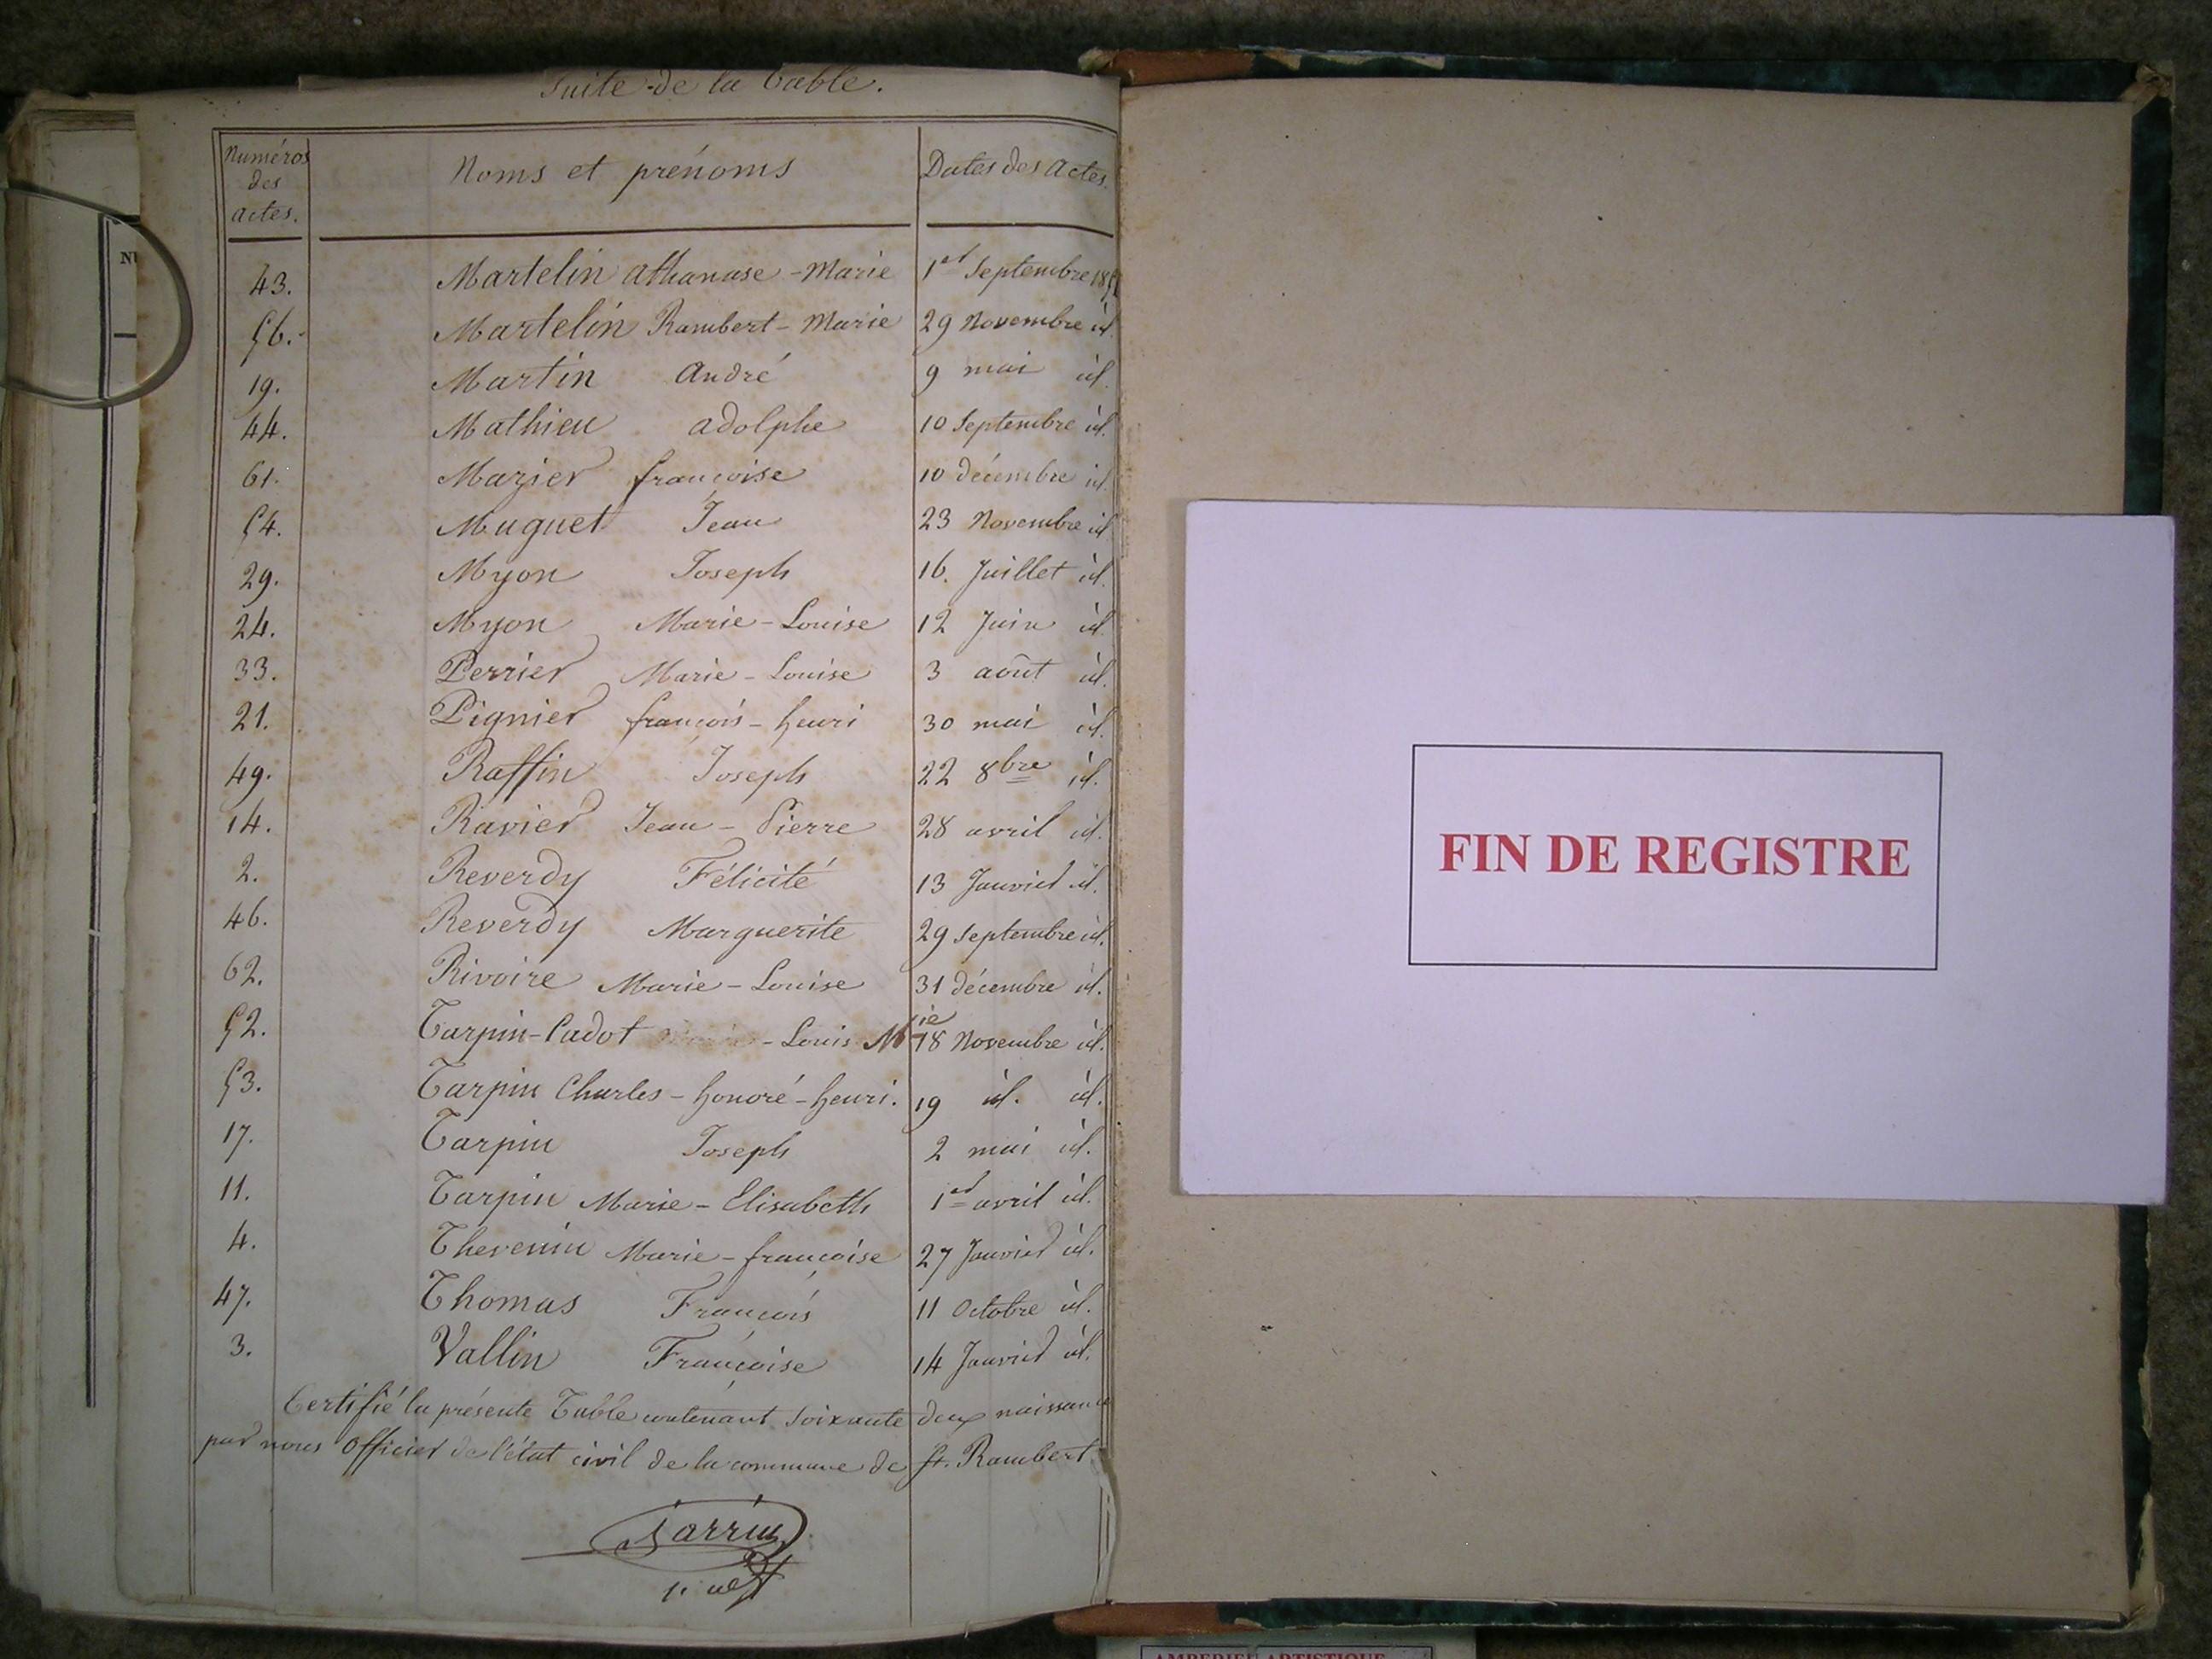 Suite de la Table.
Numéros des actes. Noms et prénoms Dates des actes.
43. Martelin athanase - Marie 1er Septembre
56. Martelin Rambert - Marie 29 Novembre id.
19. Martin andré 9 mai id.
44. Mathieu adolphe 10 Septembre id.
61. Mazier françoise 10 décembre id.
54. Muguet Jean 23 Novembre id.
29. Myon Joseph 16. Juillet id.
24. Myon Marie - Louise 12 Juin id.
33. Perrier Marie - Louise 3 août id.
21. Pignier françois - henri 30 mai id.
49. Raffin Joseph 22 8bre id.
14. Ravier Jean - Pierre 28 avril id.
2. Reverdy Félicité 13 Janvier id.
46. Reverdy Marguerite 29 Septembre id.
62. Rivoire Marie - Louise 31 décembre id.
52. Tarpin-Cadot - Louis Mie 18 Novembre id.
53. Tarpin Charles - honoré - henri. 19 id. id.
17. Tarpin Joseph 2 mai id.
11. Tarpin Marie - Elisabeth 1er avril id.
4. Thevenin Marie - françoise 27 Janvier id.
47. Thomas François 11 Octobre id.
3. Vallin Françoise 14 Janvier id.
Certifié la présente Table contenant soixante deux naissance
par nous Officier de l'état civil de la commune de St. Rambert
Sarrin
FIN DE REGISTRE
AMBERIEU ARTISTIQUE